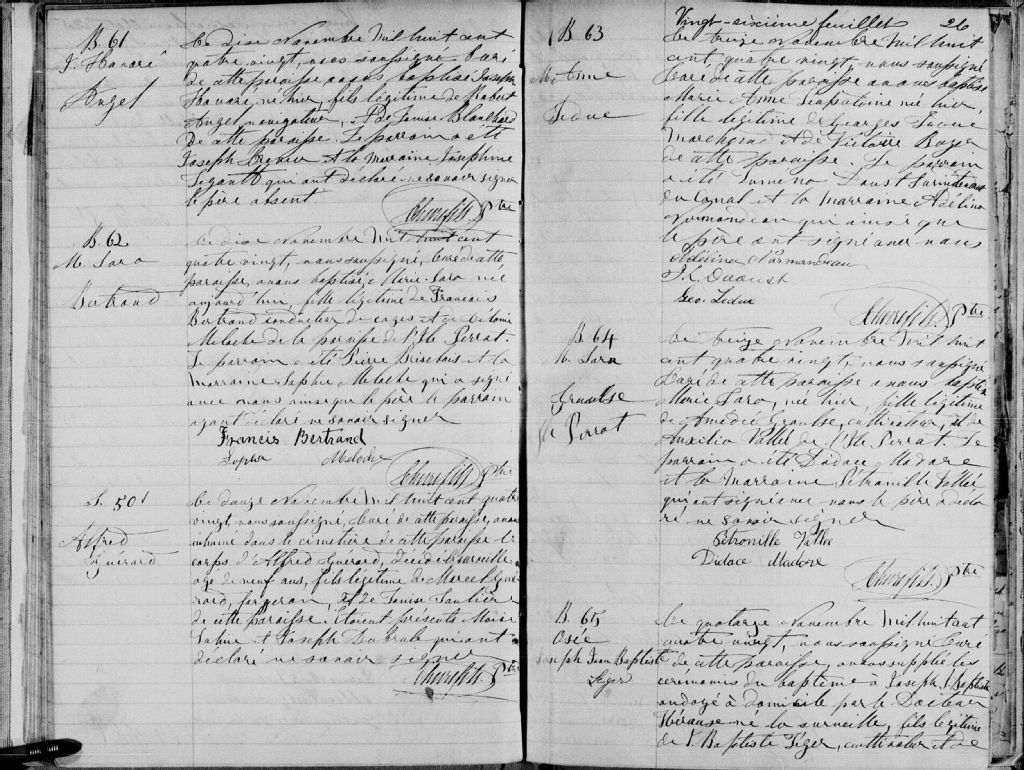 B. 61
J. Honoré
Angel
Le dixe Novembre Mil huit cent
quatre vingt, nous soussigné, Curé
de cette paroisse avons baptisé Joseph
Honoré, né hier, fils légitime de Robert
Angel navigateur, et de Louise Blanchard
de cette paroisse. Le parrain a été
Joseph et la Marraine Joséphine
qui ont déclaré ne savoir signer
le père absent
Ptre
B. 62
M. Sara
Bertrand
Le dixe Novembre Mil huit cent
quatre vingt, nous soussigné, Curé de cette
paroisse, avons baptisé, Marie Sara née
aujourd'hui, fille légitime de Francois
Bertrand conducteur de cages et de
Meloche de la paroisse de l'Ile Perrot.
Le parrain a été Pierre Brisebois et la
Marraine Sophie Meloche qui a signé
avec nous ainsi que le père le parrain
ayant déclaré ne savoir signer
Francis Bertrand
Sophie Meloche
Ptre
S. 50
Alfred
Guérard
Le douze Novembre Mil huit cent quatre
vingt, nous soussigné, Curé de cette paroisse, avons
inhumé dans le cimetière de cette paroisse le
corps d'Alfred Guérard, décédé
age de neuf ans, fils légitime de Marcel Gué
rard, forgeron, et de Louise
de cette paroisse. Etoient présents Moïse
et Joseph qui ont
déclaré ne savoir signer
Ptre
Vingt-sixième feuillet 26
B 63
M Anne
Leduc
Le treize Novembre Mil huit
cent, quatre vingt, nous soussigné
Curé de cette paroisse avons baptisé
Marie Anne née hier,
fille légitime de Georges Leduc
Marchand et de Victoire Boyer
de cette paroisse. Le parrain
a été Daoust Surintendant
du canal et la marraine Adélina
Normandeau qui ainsi que
le père ont signé avec nous
Adélina Normandeau
Daoust
Geo. Leduc
Ptre
B. 64
M. Sara
Perrot
Le treize Novembre Mil huit
cent quatre vingt, nous soussigné
Curé de cette paroisse avons baptisé
Marie Sara, née hier, fille légitime
de Amédée cultivateur, et de
Vallée de l'Ile Perrot. Le
parrain a été Didace Madore
et la Marraine Pétronille Vallée
qui ont signé avec nous le père a décla
ré ne savoir signer
Pétronille Vallée
Didace Madore
Ptre
B. 65
Osée
Joseph Jean Baptiste
Leger
Le quatorze Novembre Mil huit cent
quatre vingt, nous soussigné Curé
de cette paroisse, avons supplié les
cérémonies du baptême à Joseph J. Baptiste
ondoyé à domicile par le Docteur
né la surveille, fils légitime
de J. Baptiste Léger, cultivateur et de